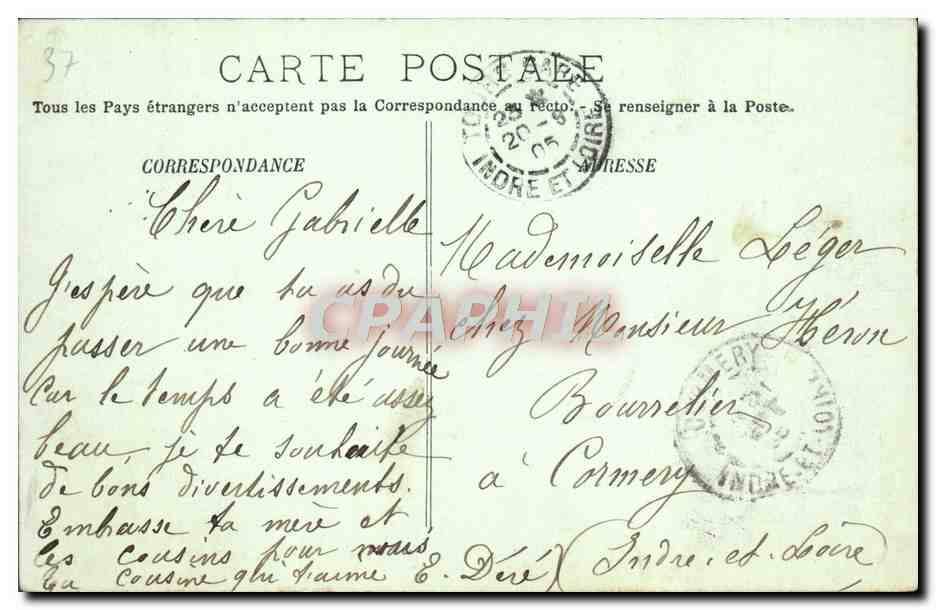 37
CARTE POSTALE
Tous les Pays étrangers n'acceptent pas la Correspondance au recto. - Se renseigner à la Poste.
TOURS GARE
20 - 8
05
INDRE ET LOIRE
CORRESPONDANCE
Chère Gabrielle
J'espère que tu as du
passer une bonne journée
Car le temps a été assez
beau, je te souhaite
de bons divertissements.
Embrasse ta mère et
les cousins pour nous
Ta cousine qui t'aime E. Déré
ADRESSE
Mademoiselle Léger
chez Monsieur Héron
Bourrelier
à Cormery
(Indre-et-Loire)
CORMERY
INDRE-ET-LOIRE
CPAPHIL